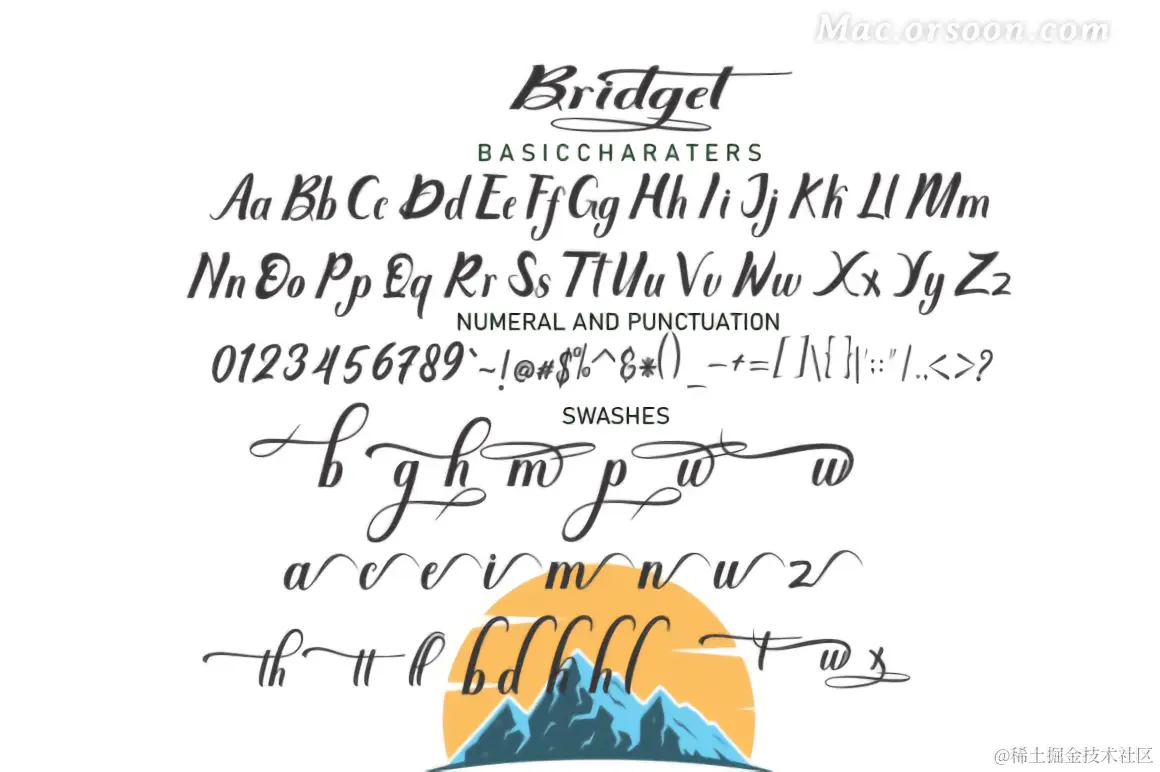 Mac.orsoon.com
Bridget
BASICCHARATERS
Aa Bb Cc Dd Ee Ff Gg Hh Ii Jj Kk Ll Mm
Nn Oo Pp Qq Rr Ss Tt Uu Vv Ww Xx Yy Zz
NUMERAL AND PUNCTUATION
0123456789`~!@#$%^&*()_-+=[]\{}|':;"/.,<>?
SWASHES
b g h m p w w
a c e i m n u z
th tt ll b d h h l t w x
@稀土掘金技术社区